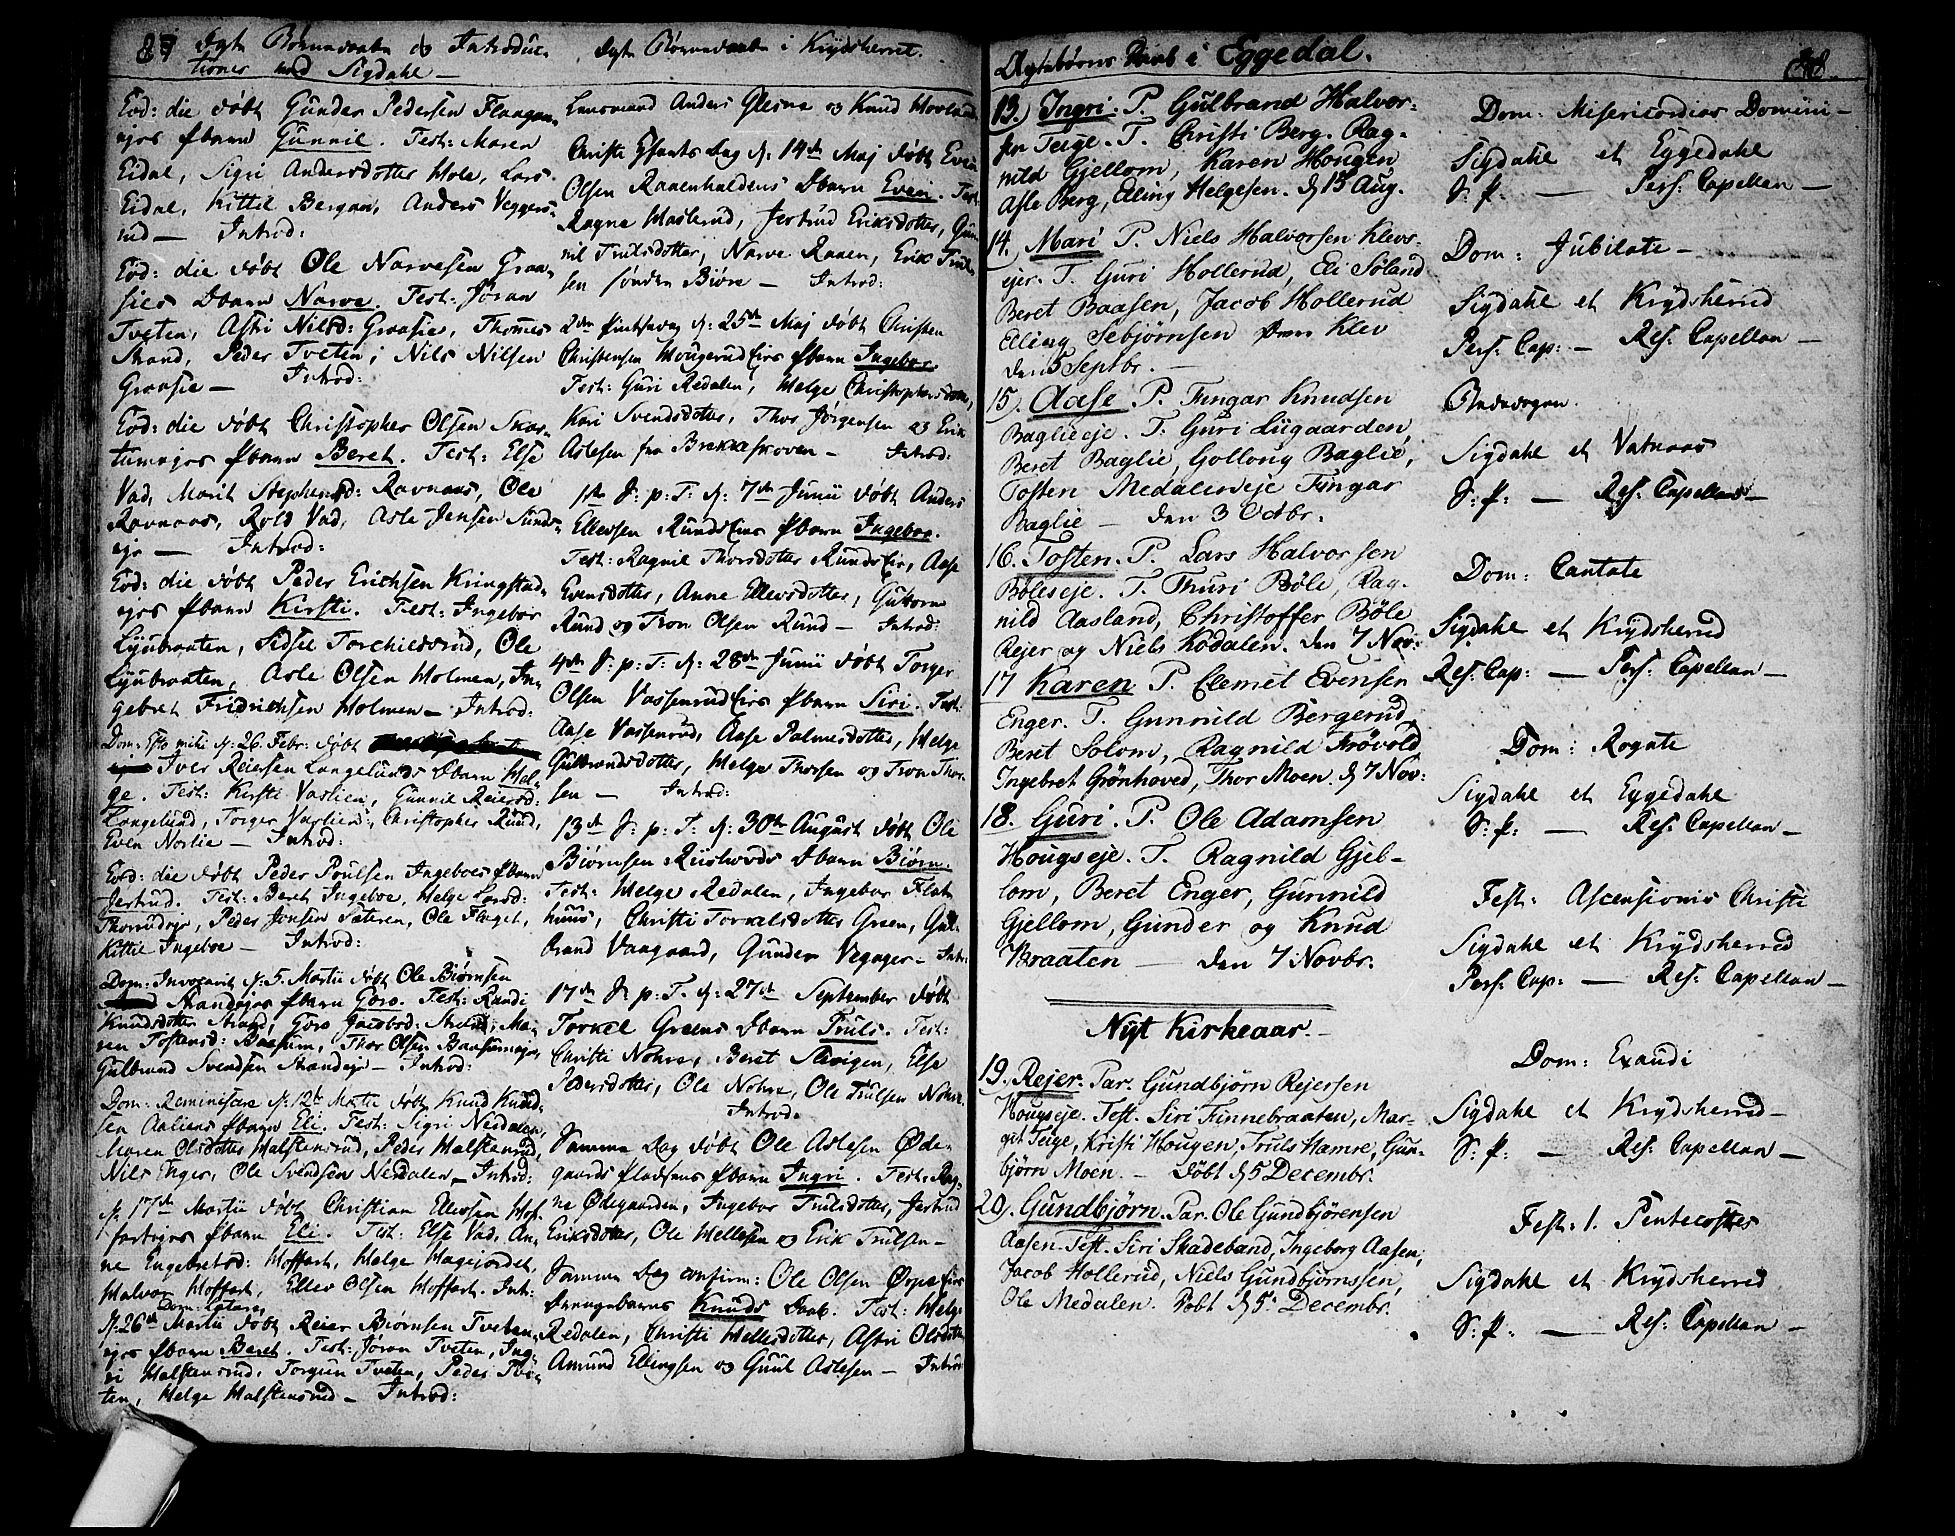 87 Ægte Børnedaab og Introduc-
tioner ved Sigdahl —
Eod: die døbt Gunder Pedersen Flaagan-
ejes Pbarn Gunnil. Test: Maren
Eidal, Sigri Andersdotter Hole, Lars
Eidal, Kittil Bergan, Anders Veggers-
rud — Introd:
Eod: die døbt Ole Narvesen Graa-
sies Dbarn Narve. Test: Jøran
Tveten, Astri Nilsd: Graasie, Thomes
Strand, Peder Tveten, Nils Nilsen
Graasie — Introd:
Eod: die døbt Christopher Olsen Skar-
tumejes Pbarn Beret. Test: Else
Vad, Marit Stephensd: Ravnaas, Ole
Ravnaas, Rold Vad, Asle Jensen Sunds-
eje — Introd:
Eod: die døbt Peder Erichsen Kringstad-
ejes Pbarn Kirsti. Test: Ingebor
Lyubraaten, Sidsel Torchildsrud, Ole
Lyubraaten, Asle Olsen Holmen, In-
gebret Fridrichsen Holmen — Introd:
Dom: Esto mihi d: 26. Febr: døbt
Iver Reiersen Langelunds Dbarn Hel-
ge. Test: Kirsti Vaslien, Gunnil Reiersd:
Langelund, Torger Vaslien, Christopher Rund,
Even Norlie — Introd:
Eod: die døbt Peder Poulsen Ingeboes Pbarn
Jertrud. Test: Beret Ingeboe, Helge Larsd:
Thorrudeje, Peder Jensen Sæteren, Ole Flaget,
Kittil Ingeboe — Introd:
Dom: Invocavit d: 5. Martii døbt Ole Biørnsen
Strandejes Pbarn Goro. Test: Randi
Knudsdotter Strand, Goro Jacobsd: Strand, Ma-
ren Tostensd: Baasum, Thor Olsen Baasumeje,
Gulbrand Svendsen Strandeje — Introd:
Dom: Reminisere d: 12te Martii døbt Knud Knud-
sen Aaliens Pbarn Eli. Test: Sigri Neddalen,
Maren Olsdotter Halstensrud, Peder Halstensrud,
Nils Enger, Ole Svendsen Neddalen — Introd:
d: 17de Martii døbt Christian Ellevsen Hof-
fartejes Pbarn Eli. Test: Else Vad, An-
ne Engebretsd: Hoffart, Helge Hagejordet,
Halvor Hoffart, Ellev Olsen Hoffart. Int:
Dom: Lætare
d: 26de Martii døbt Reier Biørnsen Tveten-
ejes Pbarn Beret. Test: Jøran Tveten, Ing-
ri Halstensrud, Torgiun Tveten, Peder Tve-
ten, Helge Halstensrud — Introd:
Ægte Børnedaab i Krydsherret.
Lænsmand Anders Glesne og Knud Hovland
Christi Himmelf. Dag d: 14de Maj døbt Even
Olsen Raaenhaldens Dbarn Even. Test:
Ragne Haslerud, Jertrud Eriksdotter, Gun-
nil Trulsdotter, Narve Raaen, Erik Trul-
sen søndre Biøre — Introd:
2den Pintsedag d: 25de Maj døbt Christen
Christensen Hougerudeies Pbarn Ingebor.
Test: Guri Redalen, Helge Christophersdotter,
Kari Svendsdotter, Thor Jørgensen og Erik
Aslesen fra Brekkeskoven — Introd:
1ste S: p: T: d: 7de Junii døbt Anders
Ellevsen Rundseies Pbarn Ingebor.
Test: Ragnil Thorsdotter Rundseie, Aase
Evensdotter, Anne Ellevsdotter, Guttorm
Rund og Tron Olsen Rund — Introd:
4de S: p: T: d: 28de Junii døbt Torger
Olsen Vassenrudeies Pbarn Siri. Test:
Aase Vassenrud, Aase Palmesdotter, Helge
Gulbrandsdotter, Helge Thorsen og Tron Thor-
sen — Introd:
13de S: p: T: d: 30te August døbt Ole
Biørnsen Ruisthovds Dbarn Biørn.
Test: Helge Redalen, Ingebor Flat-
huus, Christi Torkelsdotter Green, Gul-
brand Vaagaard, Gunder Vegager — Intr:
17de S: p: T. d: 27de September døbt
Torkel Greens Dbarn Truls. Test:
Christi Nohre, Beret Skrigen, Else
Pedersdotter, Ole Nohre, Ole Trulsen Nohre.
Introd:
Samme Dag døbt Ole Aslesen Øde-
gaards pladsens Pbarn Ingri. Test: Rag-
ne Ødegaarden, Ingebor Trulsdotter, Jertrud
Eriksdotter, Ole Hellesen og Erik Trulsen —
Samme Dag confirm: Ole Olsen Ørpeseies
Drengebarns Knuds Daab. Test: Helge
Redalen, Christi Hellesdotter, Astri Olsdotter
Amund Ellingsen og Guul Aslesen — Introd
Ægtebørns Daab i Eggedal. 88
13.) Ingri. P. Gulbrand Halvor-
sen Teige. T. Christi Berg. Rag-
nild Gjellom, Karen Hougen
Asle Berg, Edling Helgesen. d 15 Aug.
14. Mari P. Niels Halvorsen Klevs-
ejer. T. Guri Hollerud, Eli Søland
Beret Baasen, Jacob Hollerud
Edling Sebjørnsen Dræn Klev
den 5 Septbr. —
15). Aase P. Fingar Knudsen
Baglieeje. T. Guri Liigaarden,
Beret Baglie, Gollong Baglie,
Tosten Medalerseje Fingar
Baglie — den 3 Octbr.
16. Tosten. P. Lars Halvorsen
Bøleseje. T. Thuri Bøle, Rag-
nild Aasland, Christoffer Bøle
Rejer og Niels Kodalen. den 7 Nov:
17 Karen P. Clemet Evensen
Enger. T. Gunnild Bergerud
Beret Solom, Ragnild Frøvold
Ingebret Grønhoved, Thor Moen. d 7 Nov:
18. Guri. P. Ole Adamsen
Hougseje. T. Ragnild Gjel-
lom, Beret Enger, Gunnild
Gjellom, Gunder og Knud
Braaten — den 7 Novbr.
Nyt Kirkeaar. —
19. Rejer. Par. Gundbjørn Rejersen
Hougseje. Test. Siri Finnebraaten, Mar-
git Teige, Kristi Hougen, Truls Hamre, Gun-
bjørn Moen. — Døbt d 5 Decembr.
20). Gundbjørn. Par. Ole Gundbjørensen
Aasen. Test. Siri Skadeband, Ingeborg Aasen,
Jacob Hollerud, Niels Gundbjørnssen,
Ole Medalen. Døbt d 5. Decembr.
Dom: Misericordias Domini —
Sigdahl et Eggedahl
S: P: — Pers: Capellan —
Dom: Jubilate —
Sigdahl et Krydsherred
Pers: Cap: — Res: Capellan —
Bededagen.
Sigdahl et Vatnaas
S: P: — Res: Capellan —
Dom: Cantate
Sigdahl et Krydsherred
Res: Cap: — Pers: Capellan —
Dom: Rogate
Sigdahl et Eggedahl
S: P: — Res: Capellan —
Fest: Ascensionis Christi
Sigdahl et Krydsherred
Pers: Cap: — Res: Capellan —
Dom: Exaudi
Sigdahl et Krydsherred —
S: P: — Res: Capellan —
Fest: 1. Pentecostes
Sigdahl et Krydsherred
S: P: — Res: Capellan —